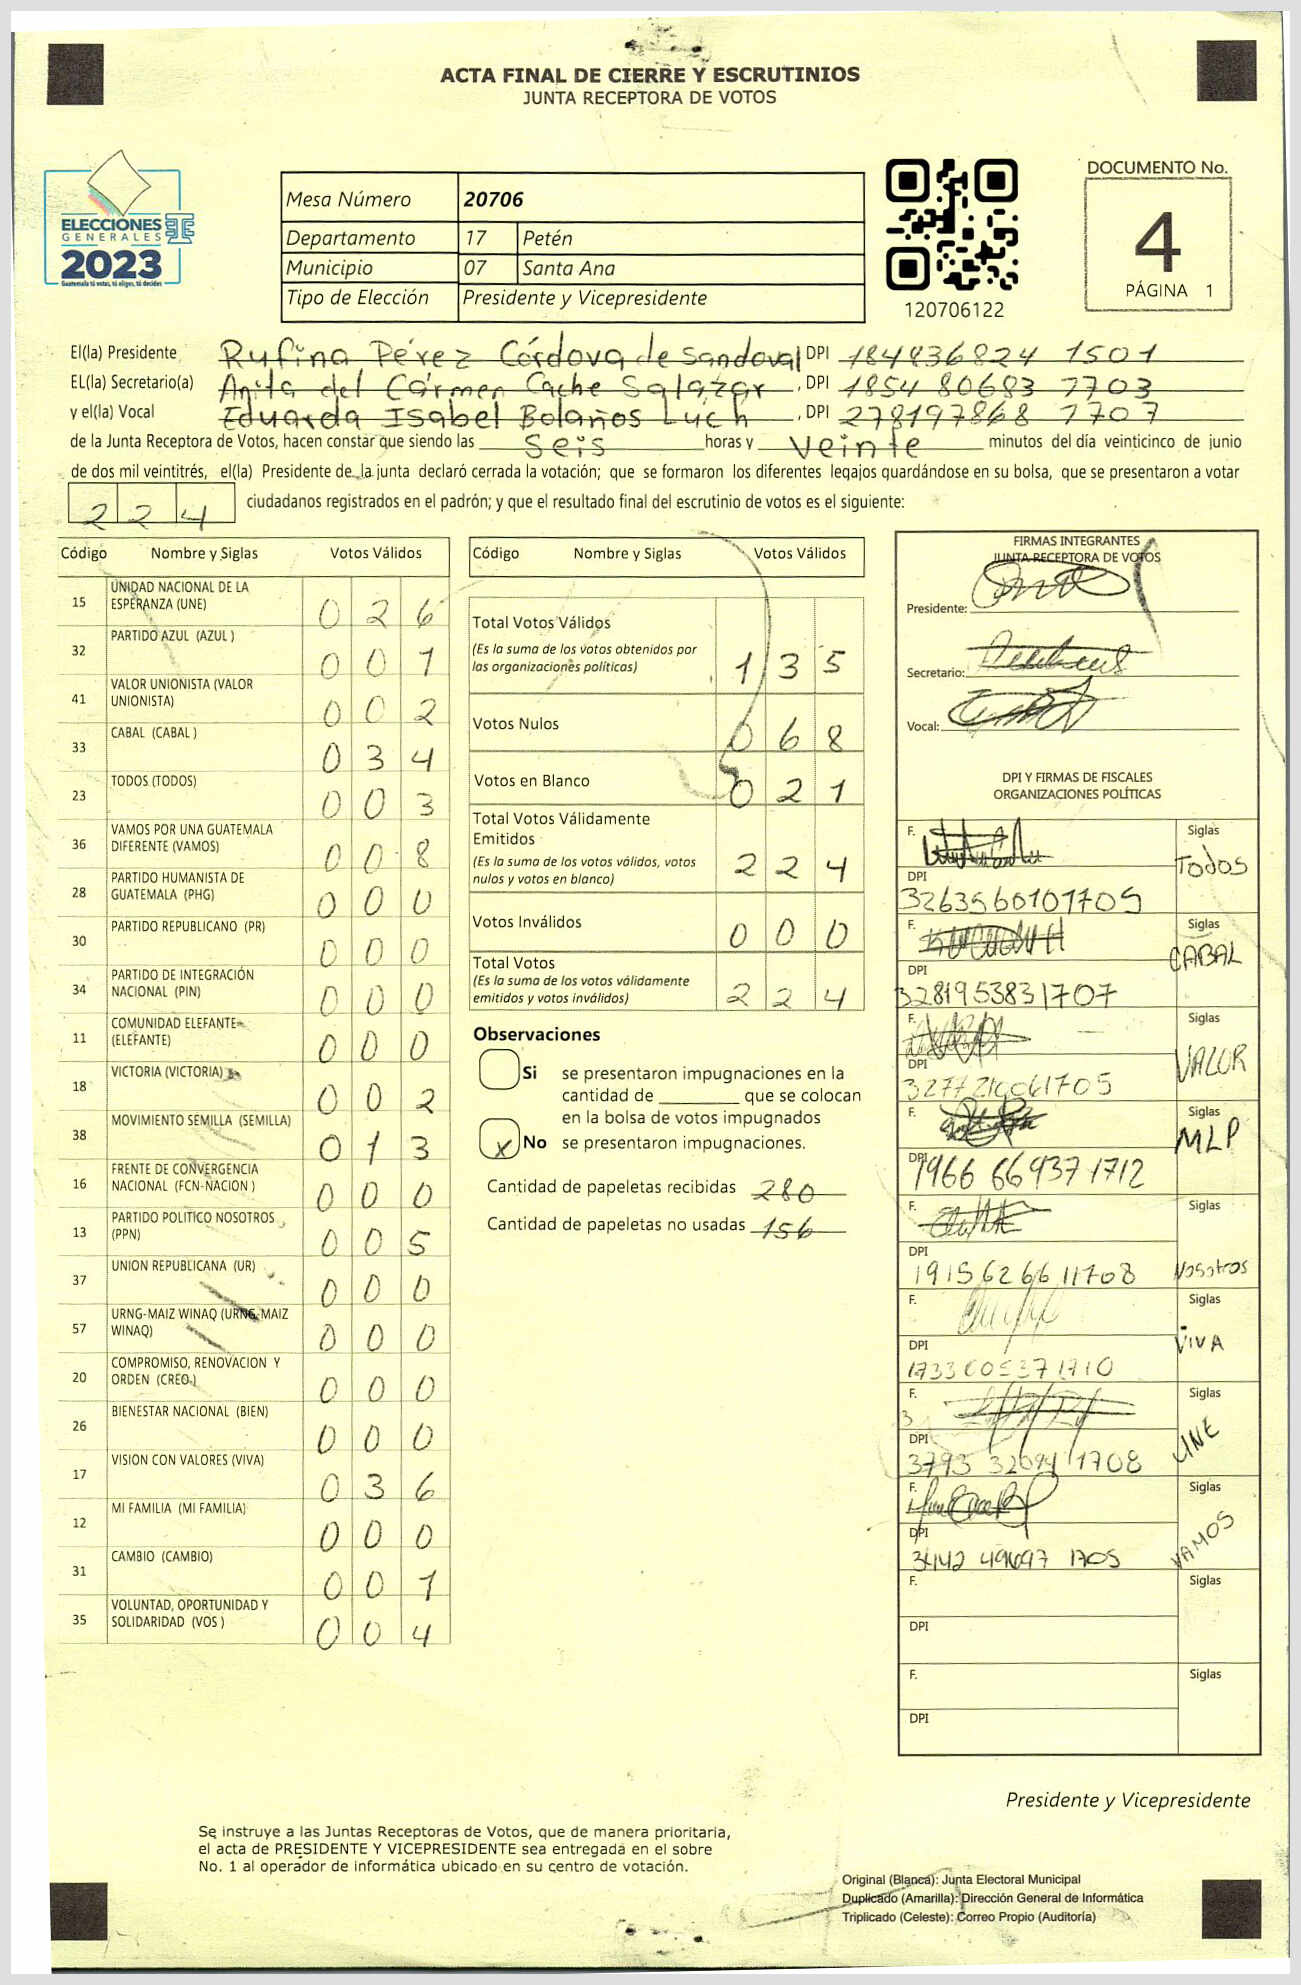 ACTA FINAL DE CIERRE Y ESCRUTINIOS
JUNTA RECEPTORA DE VOTOS
ELECCIONES
GENERALES
2023
Guatemala tú votas, tú eliges, tú decides
Mesa Número 20706
Departamento 17 Petén
Municipio 07 Santa Ana
Tipo de Elección Presidente y Vicepresidente
120706122
DOCUMENTO No.
4
PÁGINA 1
El(la) Presidente Rufina Pérez Córdova de Sandoval DPI 184836824 1501
EL(la) Secretario(a) Anita del Cármen Cache Salazar, DPI 1854 80683 1703
y el(la) Vocal Eduarda Isabel Bolaños Luch, DPI 278197868 1707
de la Junta Receptora de Votos, hacen constar que siendo las seis horas y veinte minutos del día veinticinco de junio
de dos mil veintitrés, el(la) Presidente de la junta declaró cerrada la votación; que se formaron los diferentes legajos guardándose en su bolsa, que se presentaron a votar
224 ciudadanos registrados en el padrón; y que el resultado final del escrutinio de votos es el siguiente:
Código Nombre y Siglas Votos Válidos
15 UNIDAD NACIONAL DE LA ESPERANZA (UNE) 026
32 PARTIDO AZUL (AZUL ) 001
41 VALOR UNIONISTA (VALOR UNIONISTA) 002
33 CABAL (CABAL ) 034
23 TODOS (TODOS) 003
36 VAMOS POR UNA GUATEMALA DIFERENTE (VAMOS) 008
28 PARTIDO HUMANISTA DE GUATEMALA (PHG) 000
30 PARTIDO REPUBLICANO (PR) 000
34 PARTIDO DE INTEGRACIÓN NACIONAL (PIN) 000
11 COMUNIDAD ELEFANTE (ELEFANTE) 000
18 VICTORIA (VICTORIA) 002
38 MOVIMIENTO SEMILLA (SEMILLA) 013
16 FRENTE DE CONVERGENCIA NACIONAL (FCN-NACION ) 000
13 PARTIDO POLITICO NOSOTROS (PPN) 005
37 UNION REPUBLICANA (UR) 000
57 URNG-MAIZ WINAQ (URNG-MAIZ WINAQ) 000
20 COMPROMISO, RENOVACION Y ORDEN (CREO) 000
26 BIENESTAR NACIONAL (BIEN) 000
17 VISION CON VALORES (VIVA) 036
12 MI FAMILIA (MI FAMILIA) 000
31 CAMBIO (CAMBIO) 001
35 VOLUNTAD, OPORTUNIDAD Y SOLIDARIDAD (VOS ) 004
Código Nombre y Siglas Votos Válidos
Total Votos Válidos
(Es la suma de los votos obtenidos por
las organizaciones políticas) 135
Votos Nulos 068
Votos en Blanco 021
Total Votos Válidamente
Emitidos
(Es la suma de los votos válidos, votos
nulos y votos en blanco) 224
Votos Inválidos 000
Total Votos
(Es la suma de los votos válidamente
emitidos y votos inválidos) 224
Observaciones
Si se presentaron impugnaciones en la
cantidad de ________ que se colocan
en la bolsa de votos impugnados
x No se presentaron impugnaciones.
Cantidad de papeletas recibidas 280
Cantidad de papeletas no usadas 156
FIRMAS INTEGRANTES
JUNTA RECEPTORA DE VOTOS
Presidente:
Secretario:
Vocal:
DPI Y FIRMAS DE FISCALES
ORGANIZACIONES POLÍTICAS
F. Siglas
Todos
DPI
3263560101705
F. Siglas
CABAL
DPI
3281953831707
F. Siglas
VALOR
DPI
F. Siglas
MLP
DPI
1966 66937 1712
F. Siglas
DPI
1915626611708 Nosotros
F. Siglas
VIVA
DPI
F. Siglas
UNE
DPI
F. Siglas
VAMOS
DPI
F. Siglas
DPI
F. Siglas
DPI
Presidente y Vicepresidente
Se instruye a las Juntas Receptoras de Votos, que de manera prioritaria,
el acta de PRESIDENTE Y VICEPRESIDENTE sea entregada en el sobre
No. 1 al operador de informática ubicado en su centro de votación.
Original (Blanca): Junta Electoral Municipal
Duplicado (Amarilla): Dirección General de Informática
Triplicado (Celeste): Correo Propio (Auditoría)